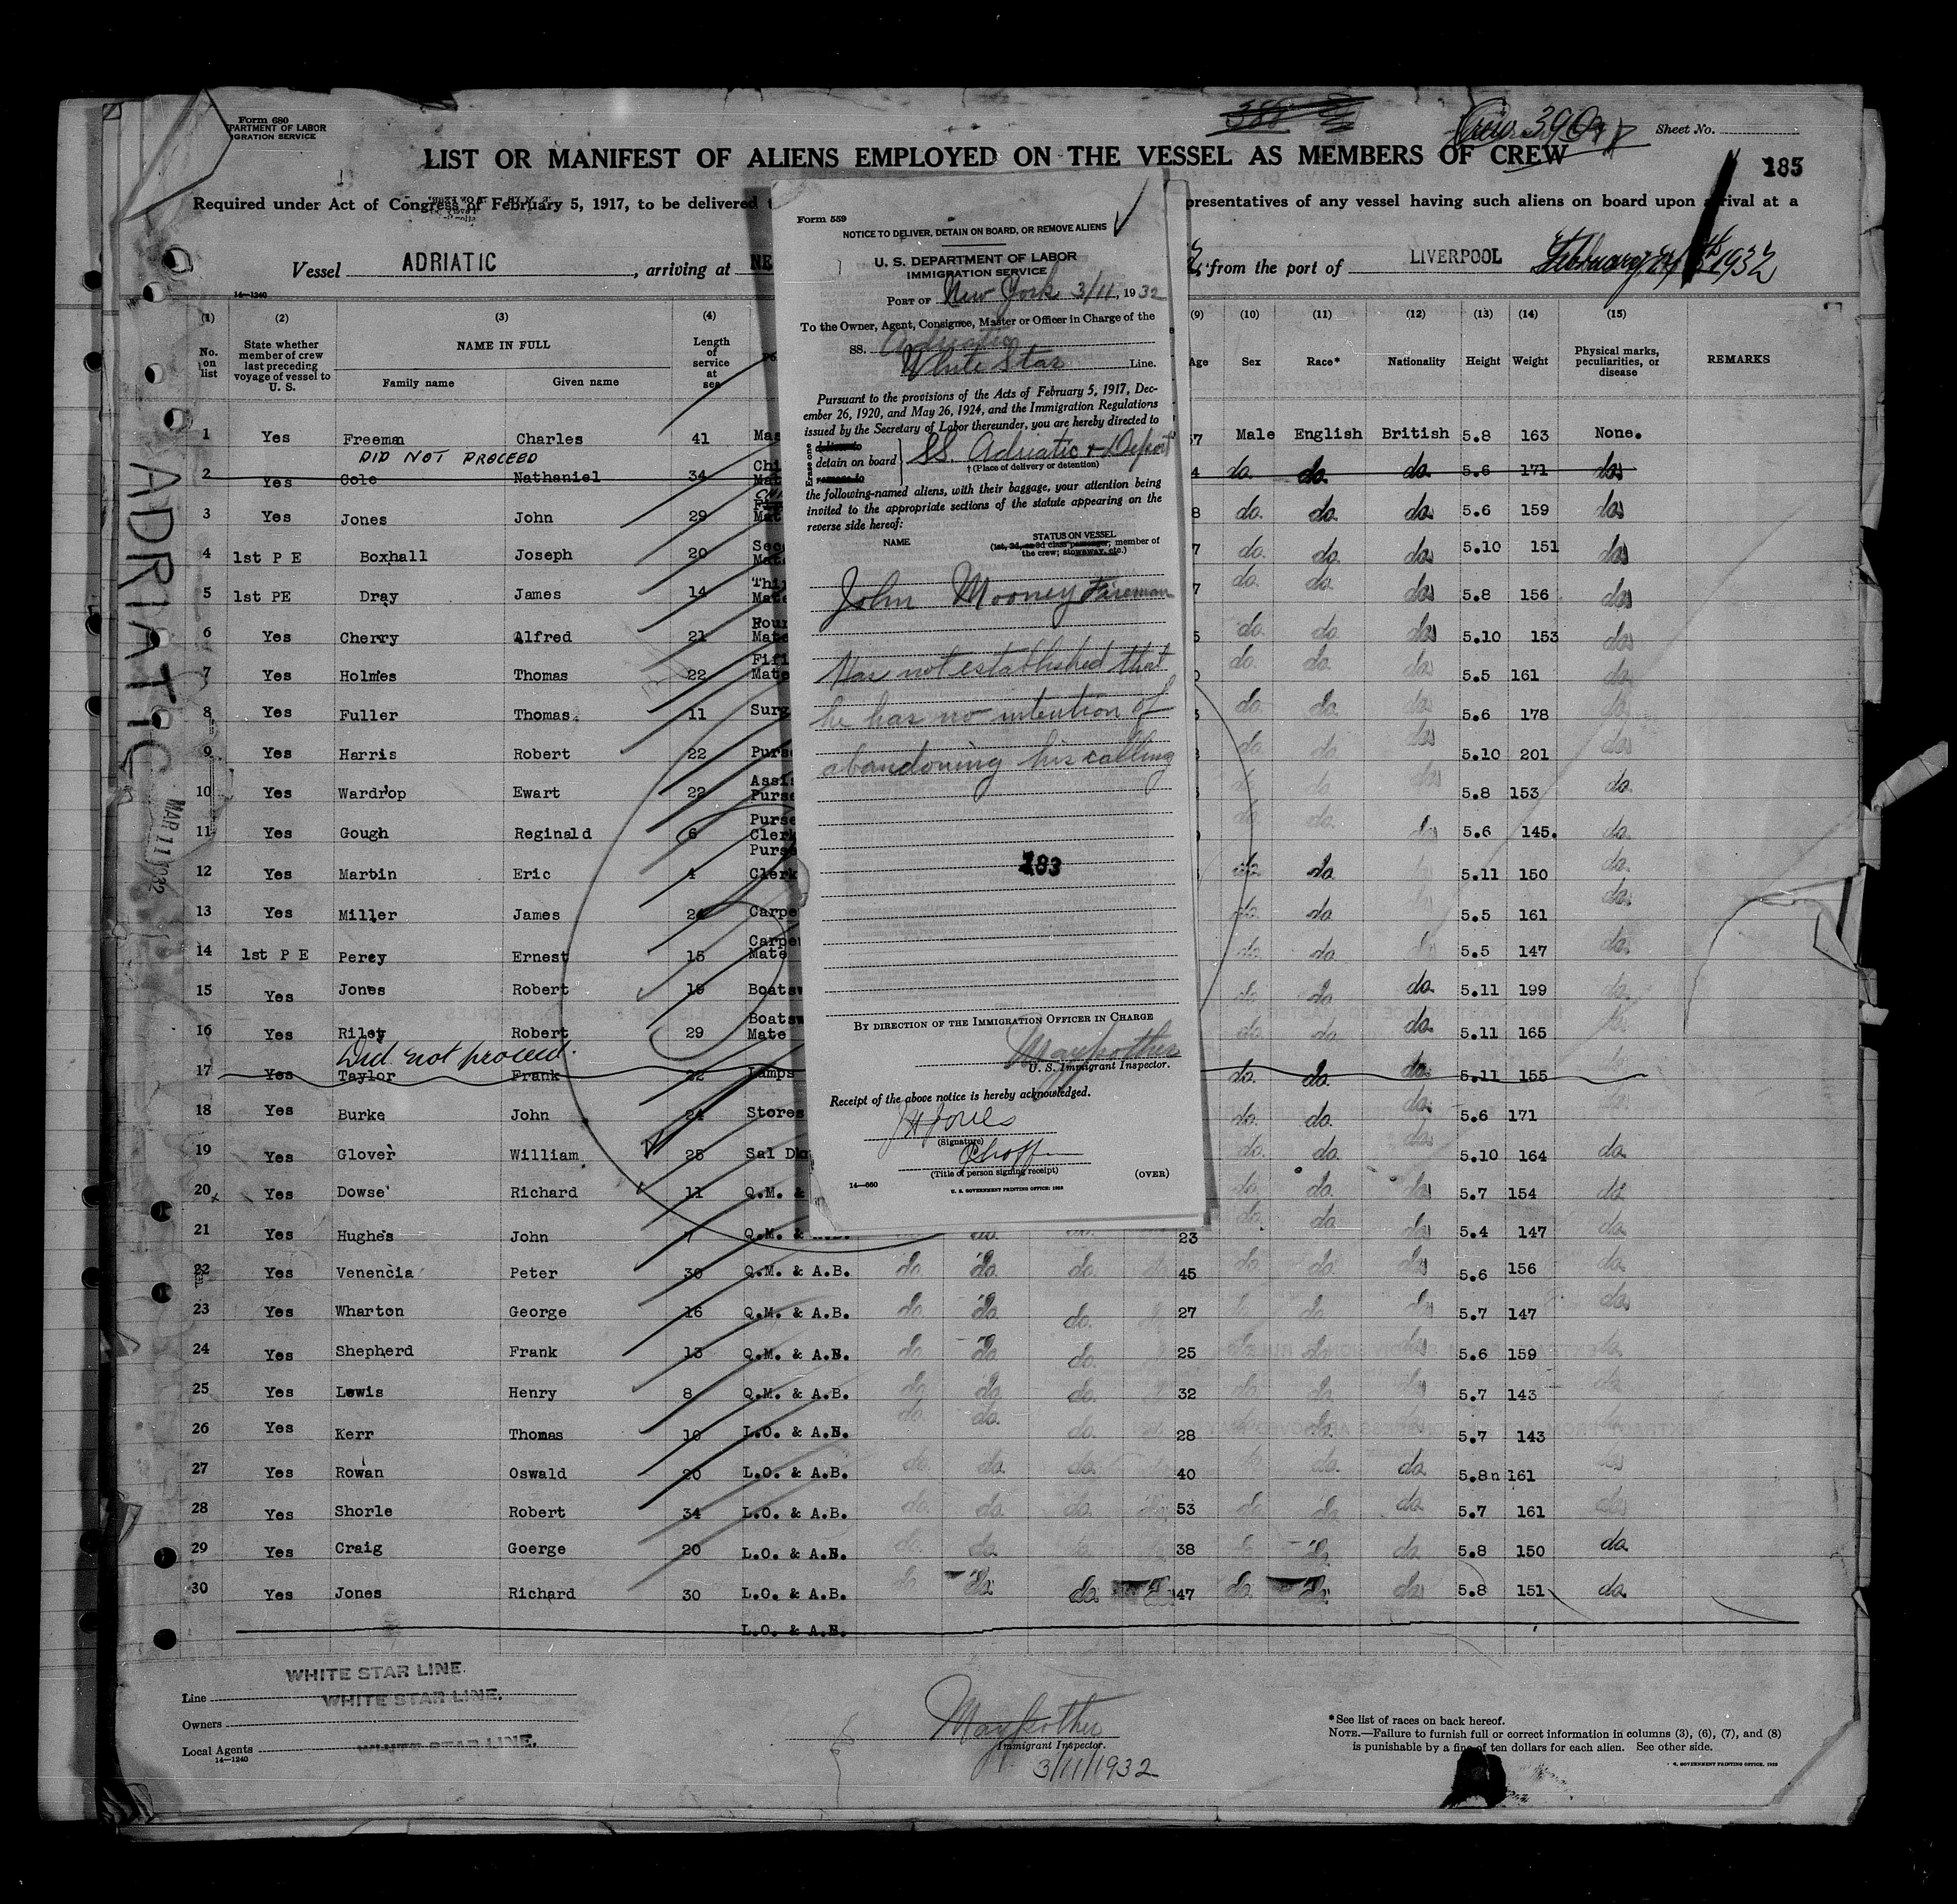 Form 680
PARTMENT OF LABOR
IGRATION SERVICE
388
Crew 390
Sheet No.
LIST OR MANIFEST OF ALIENS EMPLOYED ON THE VESSEL AS MEMBERS OF CREW
185
Required under Act of Congress of February 5, 1917, to be delivered
presentatives of any vessel having such aliens on board upon arrival at a
Vessel ADRIATIC, arriving at NE
from the port of LIVERPOOL February 1932
14—1240
(1) (2) (3) (4) (9) (10) (11) (12) (13) (14) (15)
No. on list
State whether member of crew last preceding voyage of vessel to U. S.
NAME IN FULL
Family name Given name
Length of service at sea
Age Sex Race* Nationality Height Weight
Physical marks, peculiarities, or disease
REMARKS
1 Yes Freeman Charles 41 Mas 7 Male English British 5.8 163 None.
DID NOT PROCEED
2 Yes Cole Nathaniel 34 Chi Mat 4 do. do. do. 5.6 171 do.
3 Yes Jones John 29 Mat 8 do. do. do. 5.6 159 do.
4 1st P E Boxhall Joseph 20 Sec Mate 7 do. do. do. 5.10 151 do.
5 1st PE Dray James 14 Thi Mate 7 do. do. do. 5.8 156 do.
6 Yes Cherry Alfred 21 Four Mate do. do. do. 5.10 153 do.
7 Yes Holmes Thomas 22 Fif Mate do. do. do. 5.5 161 do.
8 Yes Fuller Thomas. 11 Surg do. do. do. 5.6 178 do.
9 Yes Harris Robert 22 Purs do. do. do. 5.10 201 do.
10 Yes Wardrop Ewart 22 Assi Purse do. do. do. 5.8 153 do.
11 Yes Gough Reginald 6 Purse Clerk do. do. do. 5.6 145. do.
12 Yes Martin Eric 4 Purse Clerk do. do. 5.11 150 do.
13 Yes Miller James 24 Carpe do. do. 5.5 161 do.
14 1st P E Percy Ernest 15 Carpe Mate do. do. do. 5.5 147 do.
15 Yes Jones Robert 19 Boatsw do. do. do. 5.11 199 do.
16 Yes Riley Robert 29 Boatsw Mate do. do. do. 5.11 165 do.
Did not proceed.
17 Yes Taylor Frank 22 Lamps do. do. do. 5.11 155
18 Yes Burke John 24 Stores do. do. do. 5.6 171
19 Yes Glover William. 25 Sal D do. do. do. 5.10 164 do.
20 Yes Dowse Richard 11 Q.M. & do. do. do. 5.7 154 do.
21 Yes Hughes John 7 Q.M. & A.B. do. do. 23 do. do. do. 5.4 147 do.
22 Yes Venencia Peter 30 Q.M. & A.B. do. do. do. 45 do. do. do. 5.6 156 do.
23 Yes Wharton George 16 Q.M. & A.B. do. do. do. 27 do. do. do. 5.7 147 do.
24 Yes Shepherd Frank 13 Q.M. & A.B. do. do. do. 25 do. do. do. 5.6 159 do.
25 Yes Lewis Henry 8 Q.M. & A.B. do. do. do. 32 do. do. do. 5.7 143 do.
26 Yes Kerr Thomas 10 L.O. & A.B. do. do. do. 28 do. 5.7 143
27 Yes Rowan Oswald 20 L.O. & A.B. do. do. do. 40 do. do. 5.8n 161
28 Yes Shorle Robert 34 L.O. & A.B. do. do. do. 53 do. do. do. 5.7 161 do.
29 Yes Craig Goerge 20 L.O. & A.B. do. do. 38 do. do. 5.8 150 do.
30 Yes Jones Richard 30 L.O. & A.B. do. do. 47 do. do. do. 5.8 151 do.
L.O. & A.B.
ADRIATIC
MAR 11 1932
Form 559
NOTICE TO DELIVER, DETAIN ON BOARD, OR REMOVE ALIENS
U. S. DEPARTMENT OF LABOR
IMMIGRATION SERVICE
PORT OF New York 3/11, 1932
To the Owner, Agent, Consignee, Master or Officer in Charge of the
SS. Adriatic
White Star Line.
Pursuant to the provisions of the Acts of February 5, 1917, Dec-
ember 26, 1920, and May 26, 1924, and the Immigration Regulations
issued by the Secretary of Labor thereunder, you are hereby directed to
Erase one
deliver to
detain on board
remove to
SS. Adriatic & Deport
†(Place of delivery or detention)
the following-named aliens, with their baggage, your attention being
invited to the appropriate sections of the statute appearing on the
reverse side hereof:
NAME
STATUS ON VESSEL
(1st, 2d, or 3d class passenger, member of
the crew; stowaway, etc.)
John Mooney Fireman
Has not established that
he has no intention of
abandoning his calling
183
BY DIRECTION OF THE IMMIGRATION OFFICER IN CHARGE
Maypother
U. S. Immigrant Inspector.
Receipt of the above notice is hereby acknowledged.
(Signature)
(Title of person signing receipt)
(OVER)
14—660
U. S. GOVERNMENT PRINTING OFFICE: 1928
WHITE STAR LINE.
Line WHITE STAR LINE.
Owners
Local Agents WHITE STAR LINE.
14—1240
Maypother
Immigrant Inspector.
3/11/1932
*See list of races on back hereof.
NOTE.—Failure to furnish full or correct information in columns (3), (6), (7), and (8)
is punishable by a fine of ten dollars for each alien. See other side.
U. S. GOVERNMENT PRINTING OFFICE: 1929